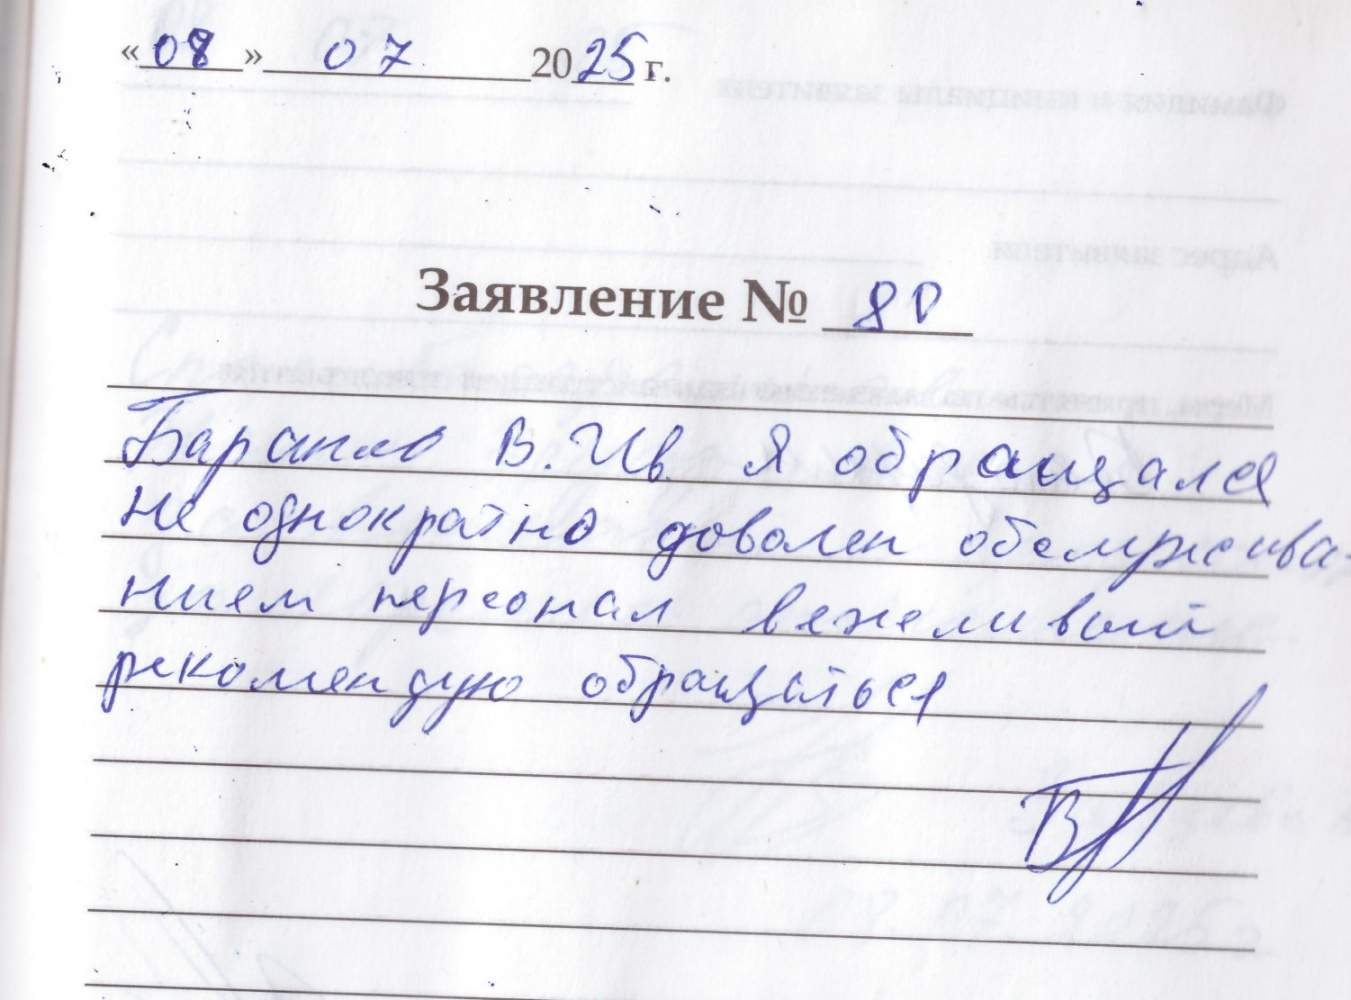 «08» 07 2025 г.
Заявление № 80
В. Ив. Я обращался
не однократно доволен обслужива-
нием персонал вежеливый
рекомендую обращаться